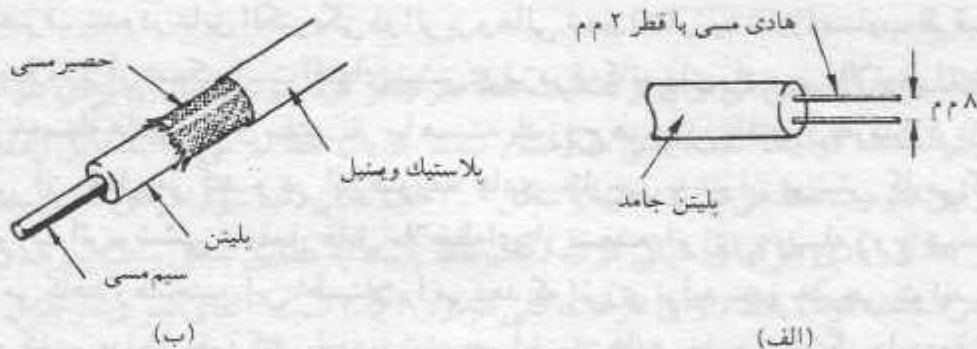 هادی مسی با قطر ۲ م م
۸ م م
پلیتن جامد
(الف)
حصیر مسی
پلاستیك وینیل
پلیتن
سیم مسی
(ب)